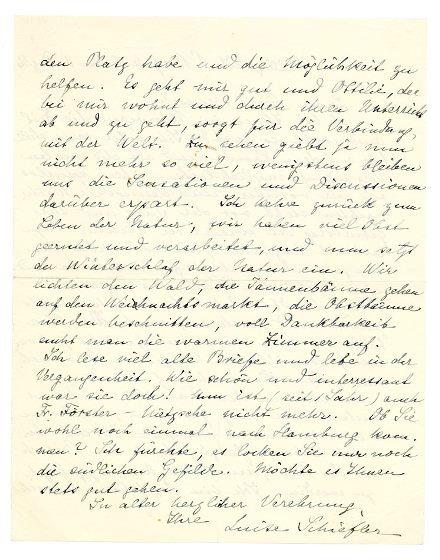 den Platz habe und die Möglichkeit zu
helfen. Es geht mir gut und Ottilie, die
bei mir wohnt und durch ihren Unterricht
ab und zu geht, sorgt für die Verbindung
mit der Welt. Zu sehen giebt es nun
nicht mehr so viel, wenigstens bleiben
uns die Sensationen und Discussionen
darüber erspart. Ich kehre zurück zum
Leben der Natur, wir haben viel Obst
geerntet und verarbeitet, und nun setzt
der Winterschlaf der Natur ein. Wir
lichten den Wald, die Tannenbäume gehen
auf den Weihnachtsmarkt, die Obstbäume
werden beschnitten, voll Dankbarkeit
sucht man die warmen Zimmer auf.
Ich lese viel alte Briefe und lebe in der
Vergangenheit. Wie schön und interressant
war sie doch! Nun ist (seit 1 Jahr) auch
Fr. Förster-Nietzsche nicht mehr. Ob Sie
wohl noch einmal nach Hamburg kom-
men? Ich fürchte, es locken Sie nur noch
die südlichen Gefilde. Möchte es Ihnen
stets gut gehen.
In alter herzlicher Verehrung
Ihre Luise Schiefler